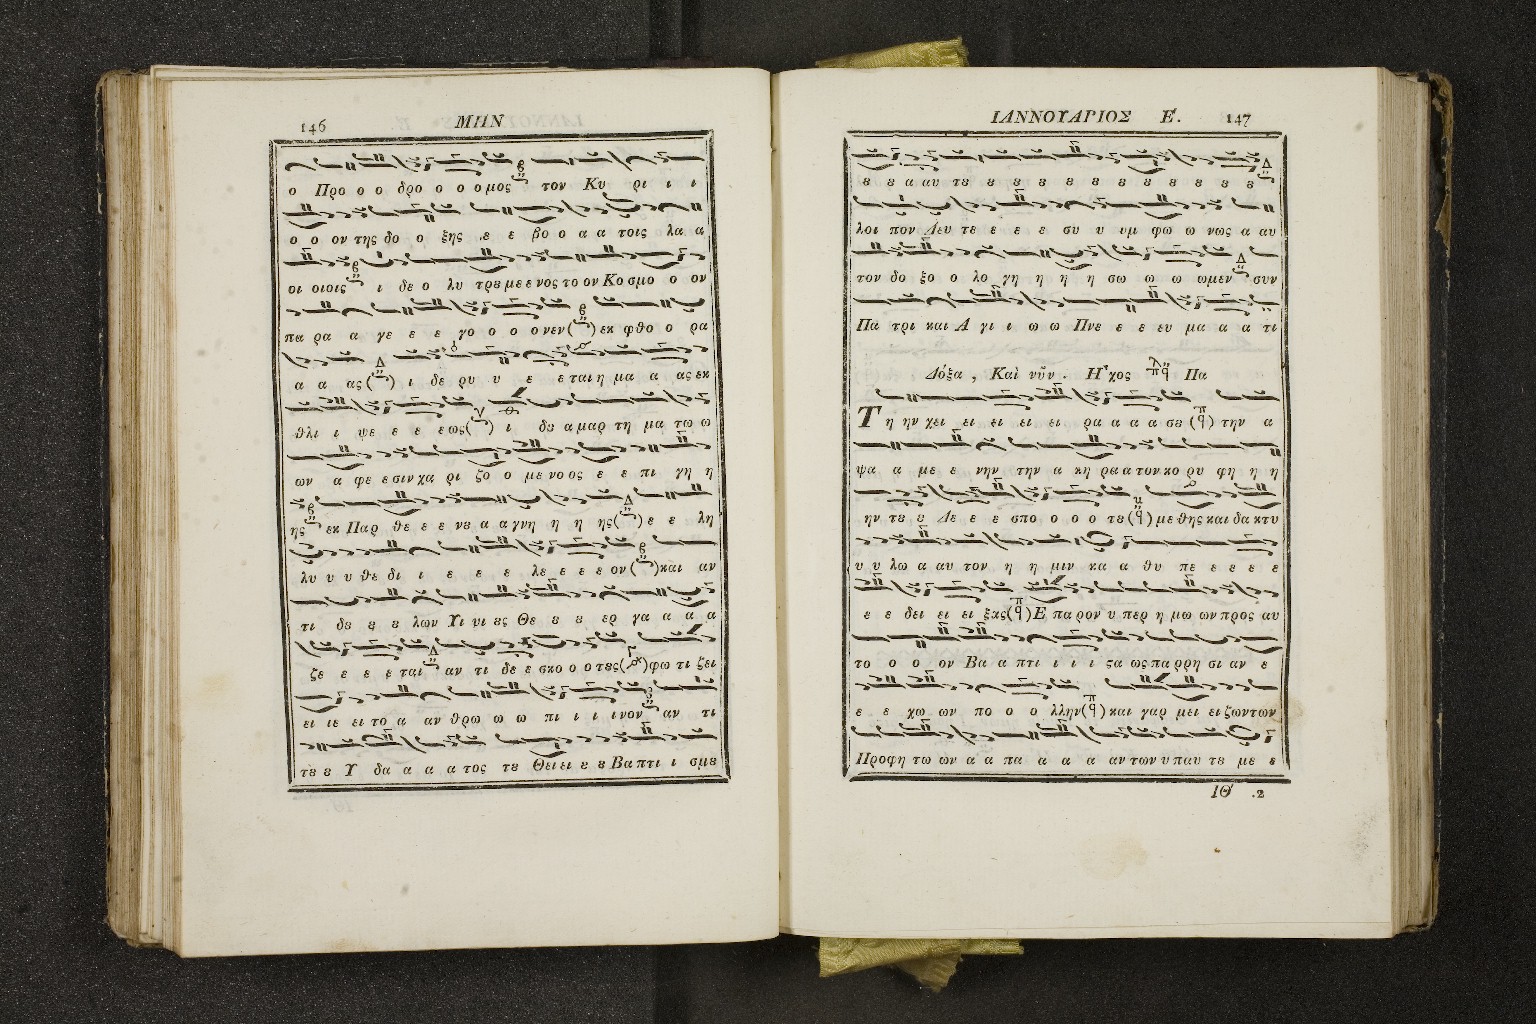 146 ΜΗΝ
ο Προ ο ο δρο ο ο ο μος τον Κυ ρι ι ι
ο ο ον της δο ο ξης ε ε βο ο α α τοις λα α
οι οιοις ι δε ο λυ τρȣ με ε νος το ον Κο σμο ο ον
πα ρα α γε ε ε γο ο ο ο νεν ( ) εκ φθο ο ρα
α α ας ( ) ι δε ρυ υ ε ε ται η μα α ας εκ
θλι ι ψε ε ε εως ( ) ι δȣ α μαρ τη μα τω ω
ων α φε ε σιν χα ρι ζο ο με νο ος ε ε πι γη η
ης εκ Παρ θε ε ε νȣ α α γνη η η ης ( ) ε ε λη
λυ υ υ θε δι ι ε ε ε λε ε ε ε ον ( ) και αν
τι δȣ ȣ ȣ λων Υι υι ȣς Θε ȣ ȣ ερ γα α α α
ζε ε ε ε ται αν τι δε ε σκο ο ο τȣς ( ) φω τι ζει
ει ιε ει το α αν θρω ω ω πι ι ι ινον αν τι
τȣ ȣ Υ δα α α α τος τȣ Θει ει ȣ ȣ Βα πτι ι σμȣ
ΙΑΝΝΟΥΑΡΙΟΣ Ε΄. 147
ȣ ȣ α αυ τȣ ȣ ȣ ȣ ȣ ȣ ȣ ȣ ȣ ȣ ȣ ȣ
λοι πον Δευ τε ε ε ε συ υ υμ φω ω νως α αυ
τον δο ξο ο λο γη η η η σω ω ω ωμεν συν
Πα τρι και Α γι ι ω ω Πνε ε ε ευ μα α α τι
Δόξα , Καὶ νῦν . Ἦχος Πα
Τη ην χει ει ει ει ει ρα α α α σȣ ( ) την α
ψα α με ε νην την α κη ρα α τον κο ρυ φη η η
ην τȣ ȣ Δε ε ε σπο ο ο ο τȣ ( ) με θης και δα κτυ
υ υ λω α αυ τον η η μιν κα α θυ πε ε ε ε ε
ε ε δει ει ει ξας ( ) Ε πα ρον υ περ η μω ων προς αυ
το ο ο ον Βα α πτι ι ι ι ϛα ως πα ρρη σι αν ε
ε ε χω ων πο ο ο λλην ( ) και γαρ μει ει ζων των
Προφη τω ων α α πα α α α αν των υ παυ τȣ με ε
ΙΘ΄ .2